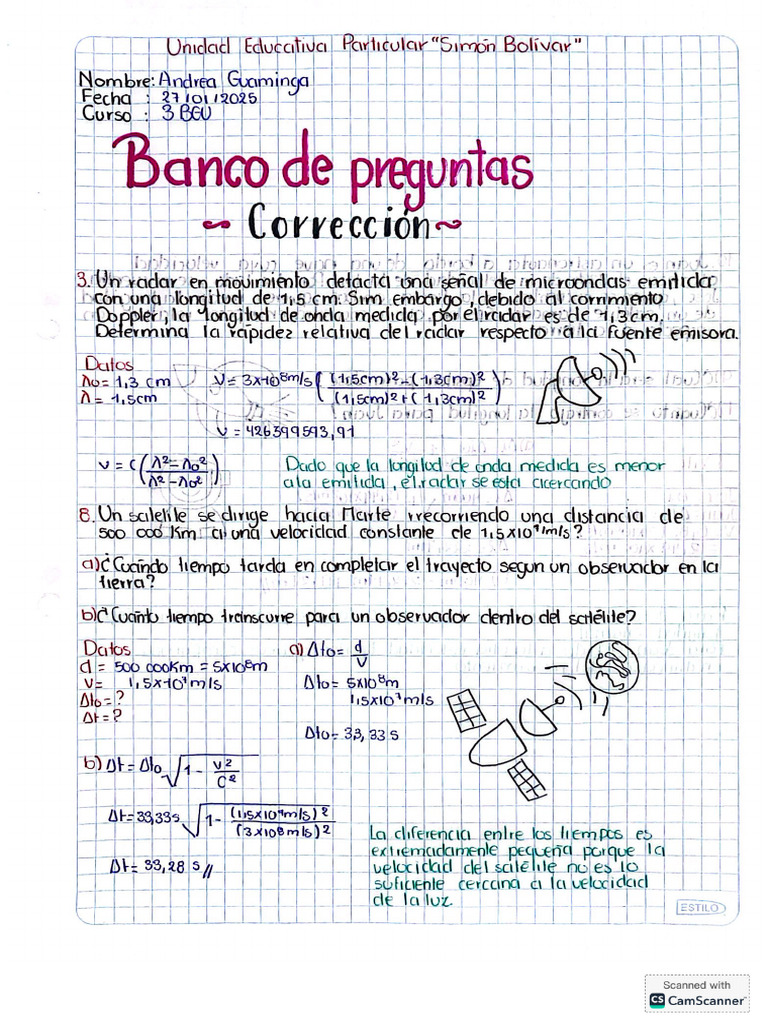 Unidad Educativa Particular "Simón Bolívar"
Nombre: Andrea Guaminga
Fecha : 27/01/2025
Curso : 3 BGU
Banco de preguntas
~ Corrección ~
3. Un radar en movimiento detacta una señal de microondas emitida
con una longitud de 1,5 cm. Sim embargo, debido al corrimiento
Doppler, la longitud de onda medida por el radar es de 1,3cm.
Determina la rapidez relativa del radar respecto a la fuente emisora.
Datos
λo = 1,3 cm
λ = 1,5cm
V = 3x10⁸m/s ( (1,5cm)² - (1,3cm)² / (1,5cm)² + (1,3cm)² )
V = 426399593,91
v = c ( λ² - λo² / λ² - λo² )
Dado que la longitud de onda medida es menor
a la emitida, el radar se esta acercando
8. Un satelile se dirige hacia Marte rrecorriendo una distancia de
500 000 Km a una velocidad constante de 1,5x10⁷m/s?
a) ¿Cuándo tiempo tarda en complelar el trayecto segun un observador en la
tierra?
b) ¿Cuánto tiempo transcurre para un observador dentro del satélite?
Datos
d = 500 000Km = 5x10⁸m
V = 1,5x10⁷m/s
Δto = ?
Δt = ?
a) Δto = d / V
Δto = 5x10⁸m / 1,5x10⁷m/s
Δto = 33,33 s
b) Δt = Δto √ 1 - V² / C²
Δt = 33,33s √ 1 - (1,5x10⁷m/s)² / (3x10⁸m/s)²
Δt = 33,28 s //
La diferencia entre los tiempos es
extremadamente pequeña porque la
velocidad del satélite no es lo
suficiente cercana a la velocidad
de la luz.
ESTILO
Scanned with
CS CamScanner